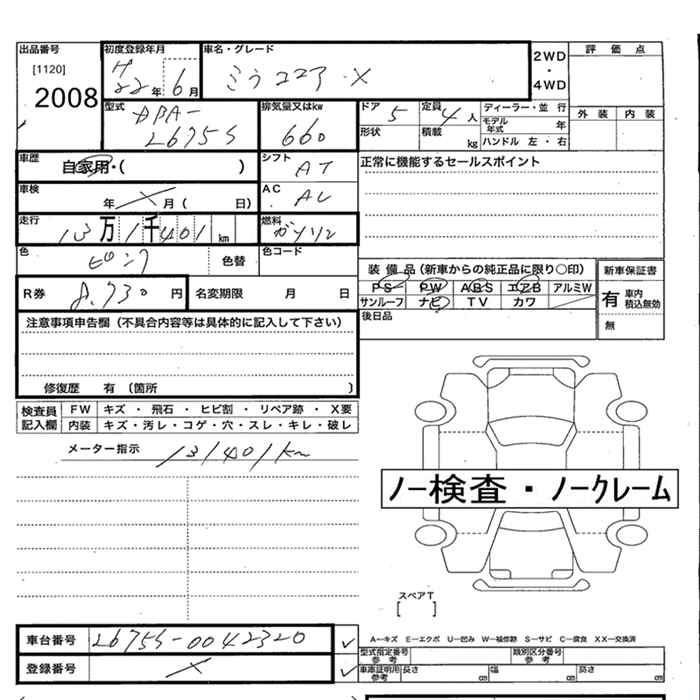 出品番号
[1120]
2008
初度登録年月
H
22年 6月
車名・グレード
ミラココア X
2WD
・
4WD
評価点
外装 内装
型式
DBA-
L675S
排気量又はkw
660
ドア 5
定員 4人
ディーラー・並行
モデル年式 年
形状
積載 kg
ハンドル 左・右
車歴
自家用・( )
シフト
AT
正常に機能するセールスポイント
車検
年 月( 日)
AC
AC
走行
13万1千401km
燃料
ガソリン
色
ピンク
色替
色コード
装備品(新車からの純正品に限り○印)
新車保証書
PS PW ABS エアB アルミW
サンルーフ ナビ TV カワ
有 車内積込無効
無
R券 8,730円
名変期限 月 日
後日品
注意事項申告欄(不具合内容等は具体的に記入して下さい)
修復歴 有(箇所 )
検査員記入欄
FW キズ・飛石・ヒビ割・リペア跡・X要
内装 キズ・汚レ・コゲ・穴・スレ・キレ・破レ
メーター指示 131401km
ノー検査・ノークレーム
スペアT
[ ]
車台番号 L675S-0042320
登録番号
A―キズ E―エクボ U―凹み W―補修跡 S―サビ C―腐食 XX―交換済
型式指定番号 参考
類別区分番号 参考
車庫証明用 参考
長さ cm 幅 cm 高さ cm